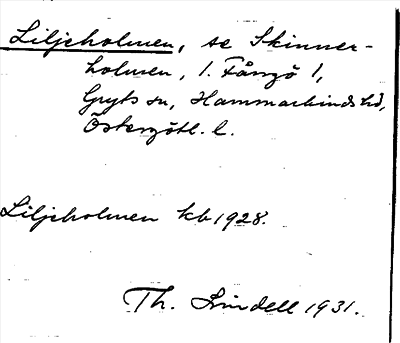 Liljeholmen, se Skinner-
holmen, l. Fångö 1,
Gryts sn, Hammarkinds hd,
Östergötl. l.
Liljeholmen kb 1928.
Th. Lindell 1931.